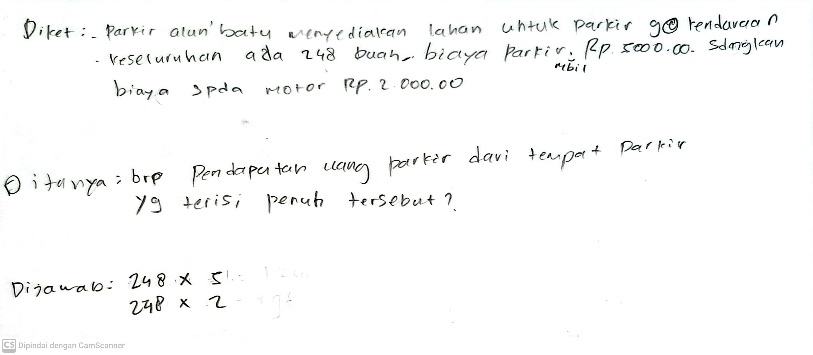 Diket : - Parkir alun' batu menyediakan lahan untuk parkir 90 kendaraan
- keseluruhan ada 248 buah - biaya parkir mbil Rp. 5000.00. sdngkan
biaya spda motor RP. 2.000.00
Ditanya : brp Pendapatan uang parkir dari tempat parkir
yg terisi penuh tersebut ?
Dijawab : 248 x 5
248 x 2
CS Dipindai dengan CamScanner